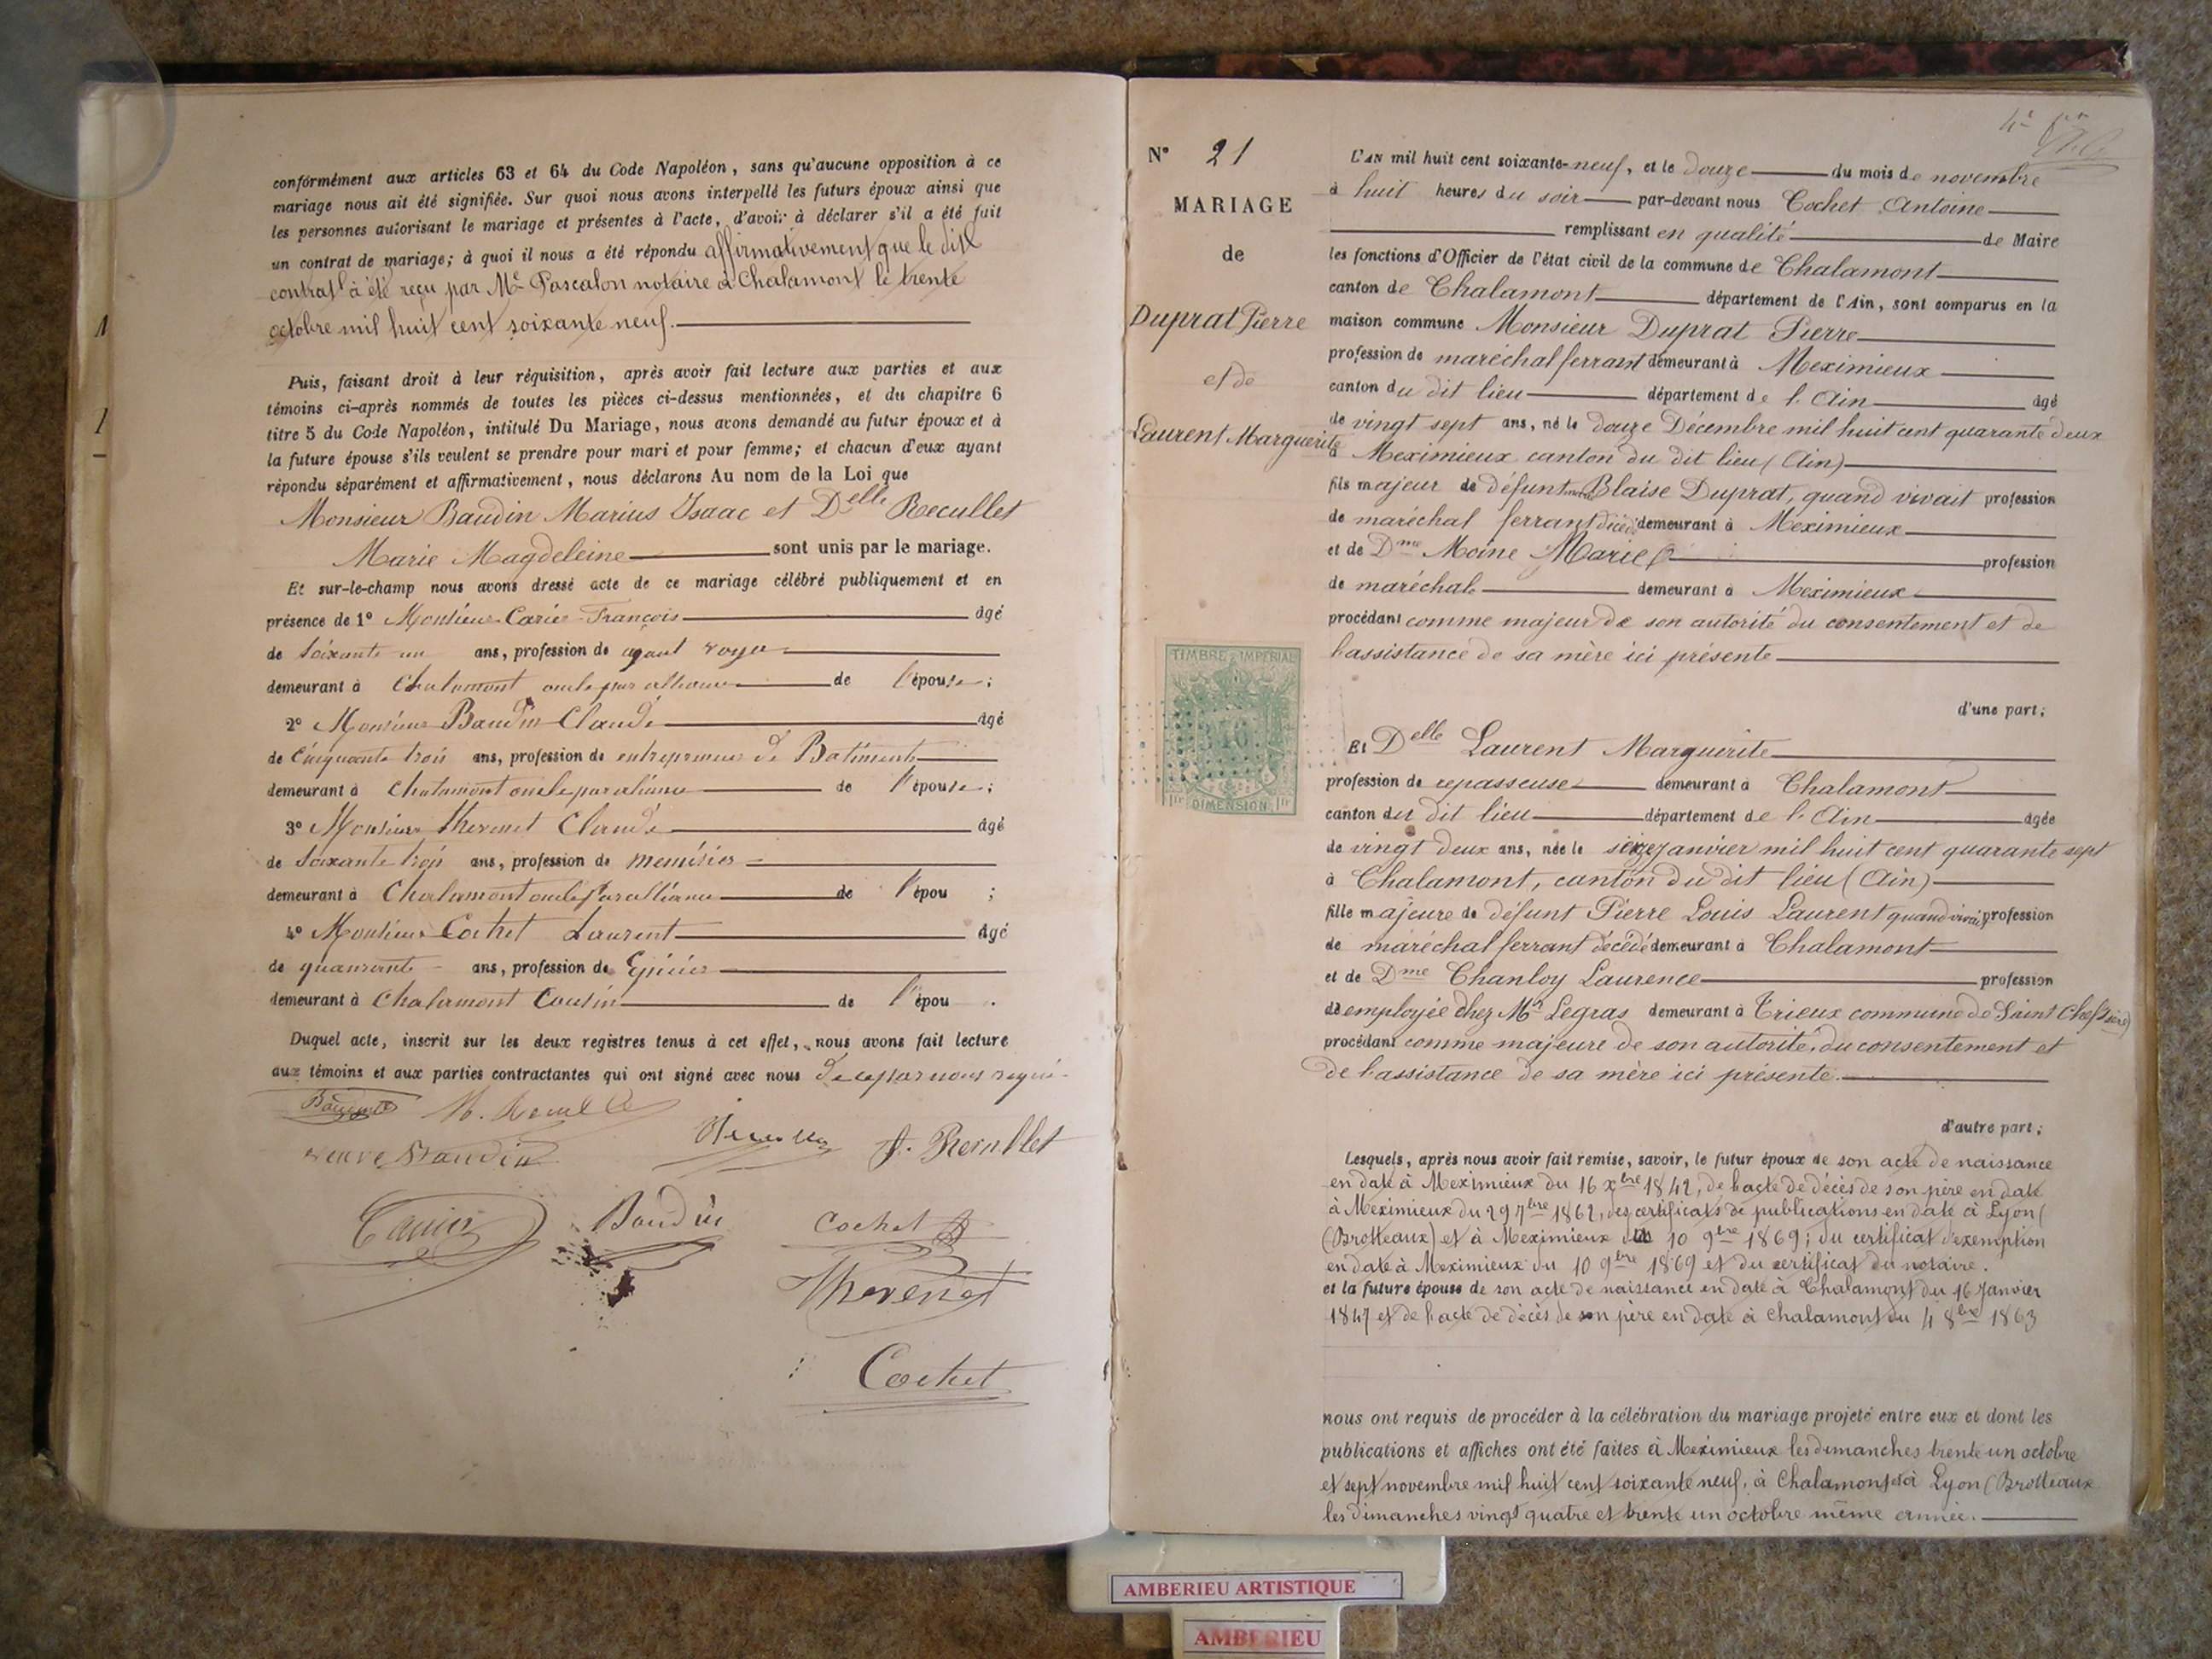 conformément aux articles 63 et 64 du Code Napoléon, sans qu'aucune opposition à ce
mariage nous ait été signifiée. Sur quoi nous avons interpellé les futurs époux ainsi que
les personnes autorisant le mariage et présentes à l'acte, d'avoir à déclarer s'il a été fait
un contrat de mariage; à quoi il nous a été répondu affirmativement que le dit
contrat à été reçu par Me Pascalon notaire à Chalamont le trente
octobre mil huit cent soixante neuf.
Puis, faisant droit à leur réquisition, après avoir fait lecture aux parties et aux
témoins ci-après nommés de toutes les pièces ci-dessus mentionnées, et du chapitre 6
titre 5 du Code Napoléon, intitulé Du Mariage, nous avons demandé au futur époux et à
la future épouse s'ils veulent se prendre pour mari et pour femme; et chacun d'eux ayant
répondu séparément et affirmativement, nous déclarons Au nom de la Loi que
Monsieur Baudin Marius Isaac et Delle Recullet
Marie Magdeleine sont unis par le mariage.
Et sur-le-champ nous avons dressé acte de ce mariage célébré publiquement et en
présence de 1° Monsieur François âgé
de Soixante un ans, profession de agent voyer
demeurant à Chalamont oncle par alliance de l'épouse;
2° Monsieur Baudin Claude âgé
de Cinquante trois ans, profession de entrepreneur de Batiments
demeurant à Chalamont oncle par aliance de l'épouse;
3° Monsieur Thevenet Claude âgé
de Soixante trois ans, profession de menuisier
demeurant à Chalamont oncle par alliance de l'épou ;
4° Monsieur Cochet Laurent âgé
de quarante ans, profession de Epicier
demeurant à Chalamont Cousin de l'épou .
Duquel acte, inscrit sur les deux registres tenus à cet effet, nous avons fait lecture
aux témoins et aux parties contractantes qui ont signé avec nous de ce par nous requi-
veuve Baudin J. Recullet
Baudin Cochet
Thevenet
Cochet
N° 21
MARIAGE
de
Duprat Pierre
et de
Laurent Marguerite
TIMBRE IMPERIAL
1fr DIMENSION 1fr
L'AN mil huit cent soixante-neuf, et le douze du mois de novembre
à huit heures du soir par-devant nous Cochet Antoine
remplissant en qualité de Maire
les fonctions d'Officier de l'état civil de la commune de Chalamont
canton de Chalamont département de l'Ain, sont comparus en la
maison commune Monsieur Duprat Pierre
profession de maréchal ferrant demeurant à Meximieux
canton du dit lieu département de l'Ain âgé
de vingt sept ans, né le douze Décembre mil huit cent quarante deux
à Meximieux canton du dit lieu (Ain)
fils majeur de défunt Blaise Duprat, quand vivait profession
de maréchal ferrant décédé demeurant à Meximieux
et de Dme Moine Marie profession
de maréchale demeurant à Meximieux
procédant comme majeur de son autorité du consentement et de
l'assistance de sa mère ici présente
d'une part;
Et Delle Laurent Marguerite
profession de repasseuse demeurant à Chalamont
canton du dit lieu département de l'Ain âgée
de vingt deux ans, née le seize janvier mil huit cent quarante sept
à Chalamont, canton du dit lieu (Ain)
fille majeure de défunt Pierre Louis Laurent quand vivait profession
de maréchal ferrant décédé demeurant à Chalamont
et de Dme Chanloy Laurence profession
de employée chez Mr Legras demeurant à Trieux commune de Saint Chef (Isère)
procédant comme majeure de son autorité, du consentement et
de l'assistance de sa mère ici présente.
d'autre part;
Lesquels, après nous avoir fait remise, savoir, le futur époux de son acte de naissance
en date à Meximieux du 16 xbre 1842, de l'acte de décès de son père en date
à Meximieux du 29 7bre 1862, des certificats de publications en date à Lyon (
(Brotteaux) et à Meximieux du 10 9bre 1869; du certificat d'exemption
en date à Meximieux du 10 9bre 1869 et du certificat du notaire.
et la future épouse de son acte de naissance en date à Chalamont du 16 Janvier
1847 et de l'acte de décès de son père en date à Chalamont du 4 8bre 1863
nous ont requis de procéder à la célébration du mariage projeté entre eux et dont les
publications et affiches ont été faites à Meximieux les dimanches trente un octobre
et sept novembre mil huit cent soixante neuf, à Chalamont et à Lyon (Brotteaux
les dimanches vingt quatre et trente un octobre même année.
AMBERIEU ARTISTIQUE
AMBERIEU